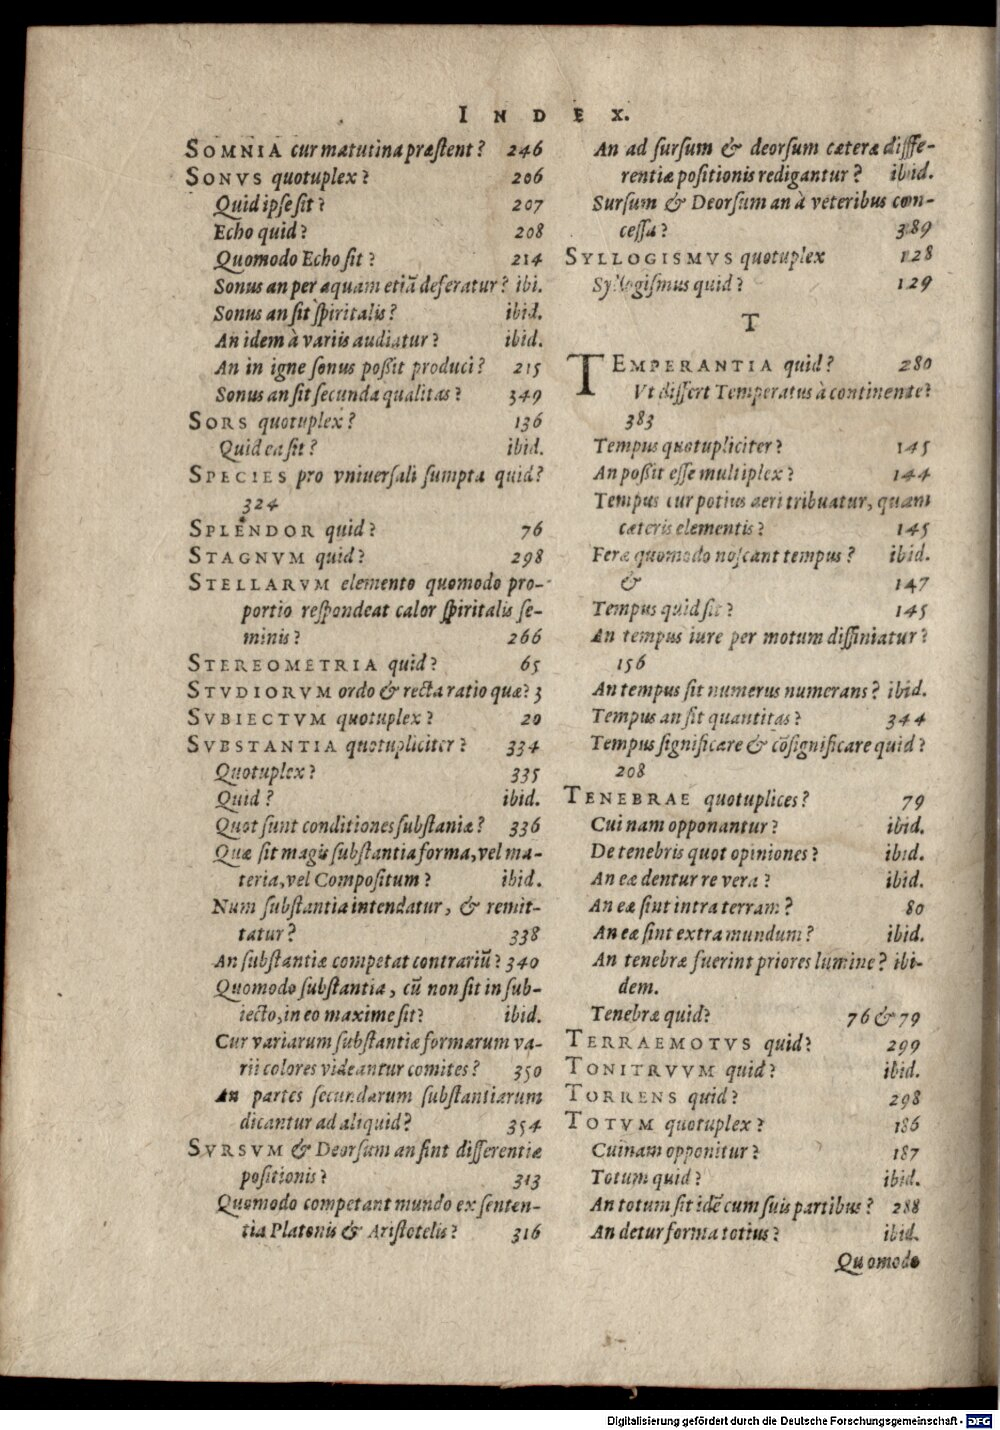 INDEX.
SOMNIA cur matutina præſtent? 246
SONVS quotuplex? 206
Quid ipſe ſit? 207
Echo quid? 208
Quomodo Echo ſit? 214
Sonus an per aquam etiã deferatur? ibi.
Sonus an ſit ſpiritalis? ibid.
An idem à variis audiatur? ibid.
An in igne ſonus poßit produci? 215
Sonus an ſit ſecunda qualitas? 349
SORS quotuplex? 136
Quid ea ſit? ibid.
SPECIES pro vniuerſali ſumpta quid?
324
SPLENDOR quid? 76
STAGNVM quid? 298
STELLARVM elemento quomodo pro-
portio reſpondeat calor ſpiritalis ſe-
minis? 266
STEREOMETRIA quid? 65
STVDIORVM ordo & recta ratio quæ? 3
SVBIECTVM quotuplex? 20
SVBSTANTIA quotupliciter? 334
Quotuplex? 335
Quid? ibid.
Quot ſunt conditiones ſubſtaniæ? 336
Quæ ſit magis ſubſtantia forma, vel ma-
teria, vel Compoſitum? ibid.
Num ſubſtantia intendatur, & remit-
tatur? 338
An ſubſtantiæ competat contrariũ? 340
Quomodo ſubſtantia, cũ non ſit in ſub-
iecto, in eo maxime ſit? ibid.
Cur variarum ſubſtantiæ formarum va-
rii colores videantur comites? 350
An partes ſecundarum ſubſtantiarum
dicantur ad aliquid? 354
SVRSVM & Deorſum an ſint differentiæ
poſitionis? 313
Quomodo competant mundo ex ſenten-
tia Platonis & Ariſtotelis? 316
An ad ſurſum & deorſum cæteræ diffe-
rentiæ poſitionis redigantur? ibid.
Surſum & Deorſum an à veteribus con-
ceſſa? 389
SYLLOGISMVS quotuplex 128
Syllogiſmus quid? 129
T
TEMPERANTIA quid? 280
Vt differt Temperatus à continente?
383
Tempus quotupliciter? 145
An poßit eſſe multiplex? 144
Tempus cur potius aeri tribuatur, quam
cæteris elementis? 145
Feræ quomodo noſcant tempus? ibid.
& 147
Tempus quid ſit? 145
An tempus iure per motum diffiniatur?
156
An tempus ſit numerus numerans? ibid.
Tempus an ſit quantitas? 344
Tempus ſignificare & cõſignificare quid?
208
TENEBRAE quotuplices? 79
Cui nam opponantur? ibid.
De tenebris quot opiniones? ibid.
An eæ dentur re vera? ibid.
An eæ ſint intra terram? 80
An eæ ſint extra mundum? ibid.
An tenebræ fuerint priores lumine? ibi-
dem.
Tenebræ quid? 76 & 79
TERRAEMOTVS quid? 299
TONITRVVM quid? ibid.
TORRENS quid? 298
TOTVM quotuplex? 186
Cuinam opponitur? 187
Totum quid? ibid.
An totum ſit idẽ cum ſuis partibus? 288
An detur forma totius? ibid.
Quomodo
Digitalisierung gefördert durch die Deutsche Forschungsgemeinschaft - DFG